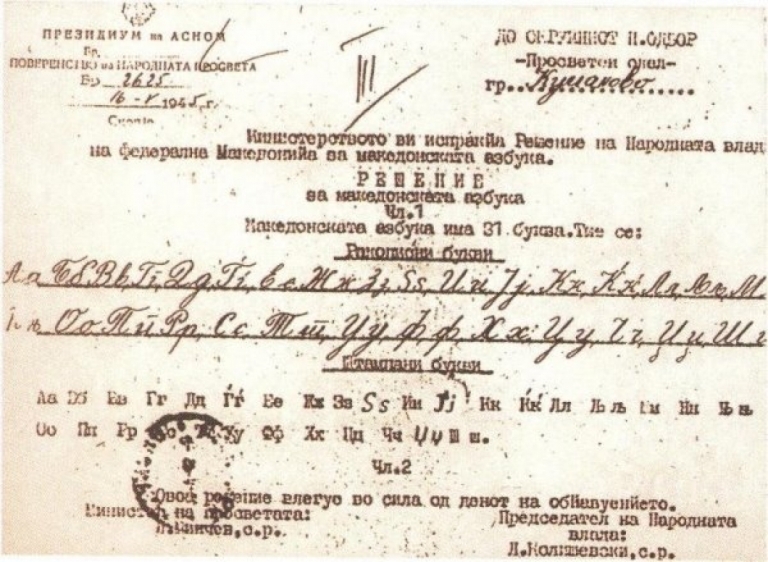 ПРЕЗИДИУМ на АСНОМ
Бр.
ПОВЕРЕНСТВО на НАРОДНАТА ПРОСВЕТА
Бр. 2625
16-V-1945 г.
Скопје
III
ДО ОКРУЖНИОТ Н.ОДБОР
-Просветен одел-
гр. Куманово
Министерството ви испраќйа Решение на Народната влад
на федерална Македонийа за македонската азбука.
РЕШЕНИЕ
за македонската азбука
Чл.1
Македонската азбука има 31 буква.Тие се:
Ракописни букви
Аа Бб Вв Гг Дд Ѓѓ Ее Жж Зз Ѕѕ Ии Јј Кк Ќќ Лл Љљ М
Њ њ Оо Пп Рр Сс Тт Уу Фф Хх Цц Чч Џџ Ш
Штампани букви
Аа Бб Вв Гг Дд Ѓѓ Ее Жж Зз Ѕѕ Ии Јј Кк Ќќ Лл Љљ Мм Нн Њњ
Оо Пп Рр Сс Тт Уу Фф Хх Цц Чч Џџ Шш.
Чл.2
Овоа решение влегуе во сила од денот на обйавуението.
Министер на просветата:
Председател на Народната
влада:
Л.Колишевски,с.р.